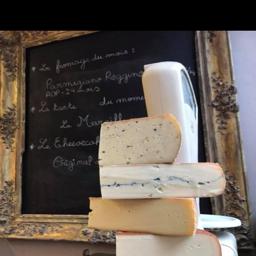 * Le fromage du mois :
Parmigiano Reggiano
AOP - 24 mois
* La tarte du moment
Le Maroill
* Le Cheesecak
Original